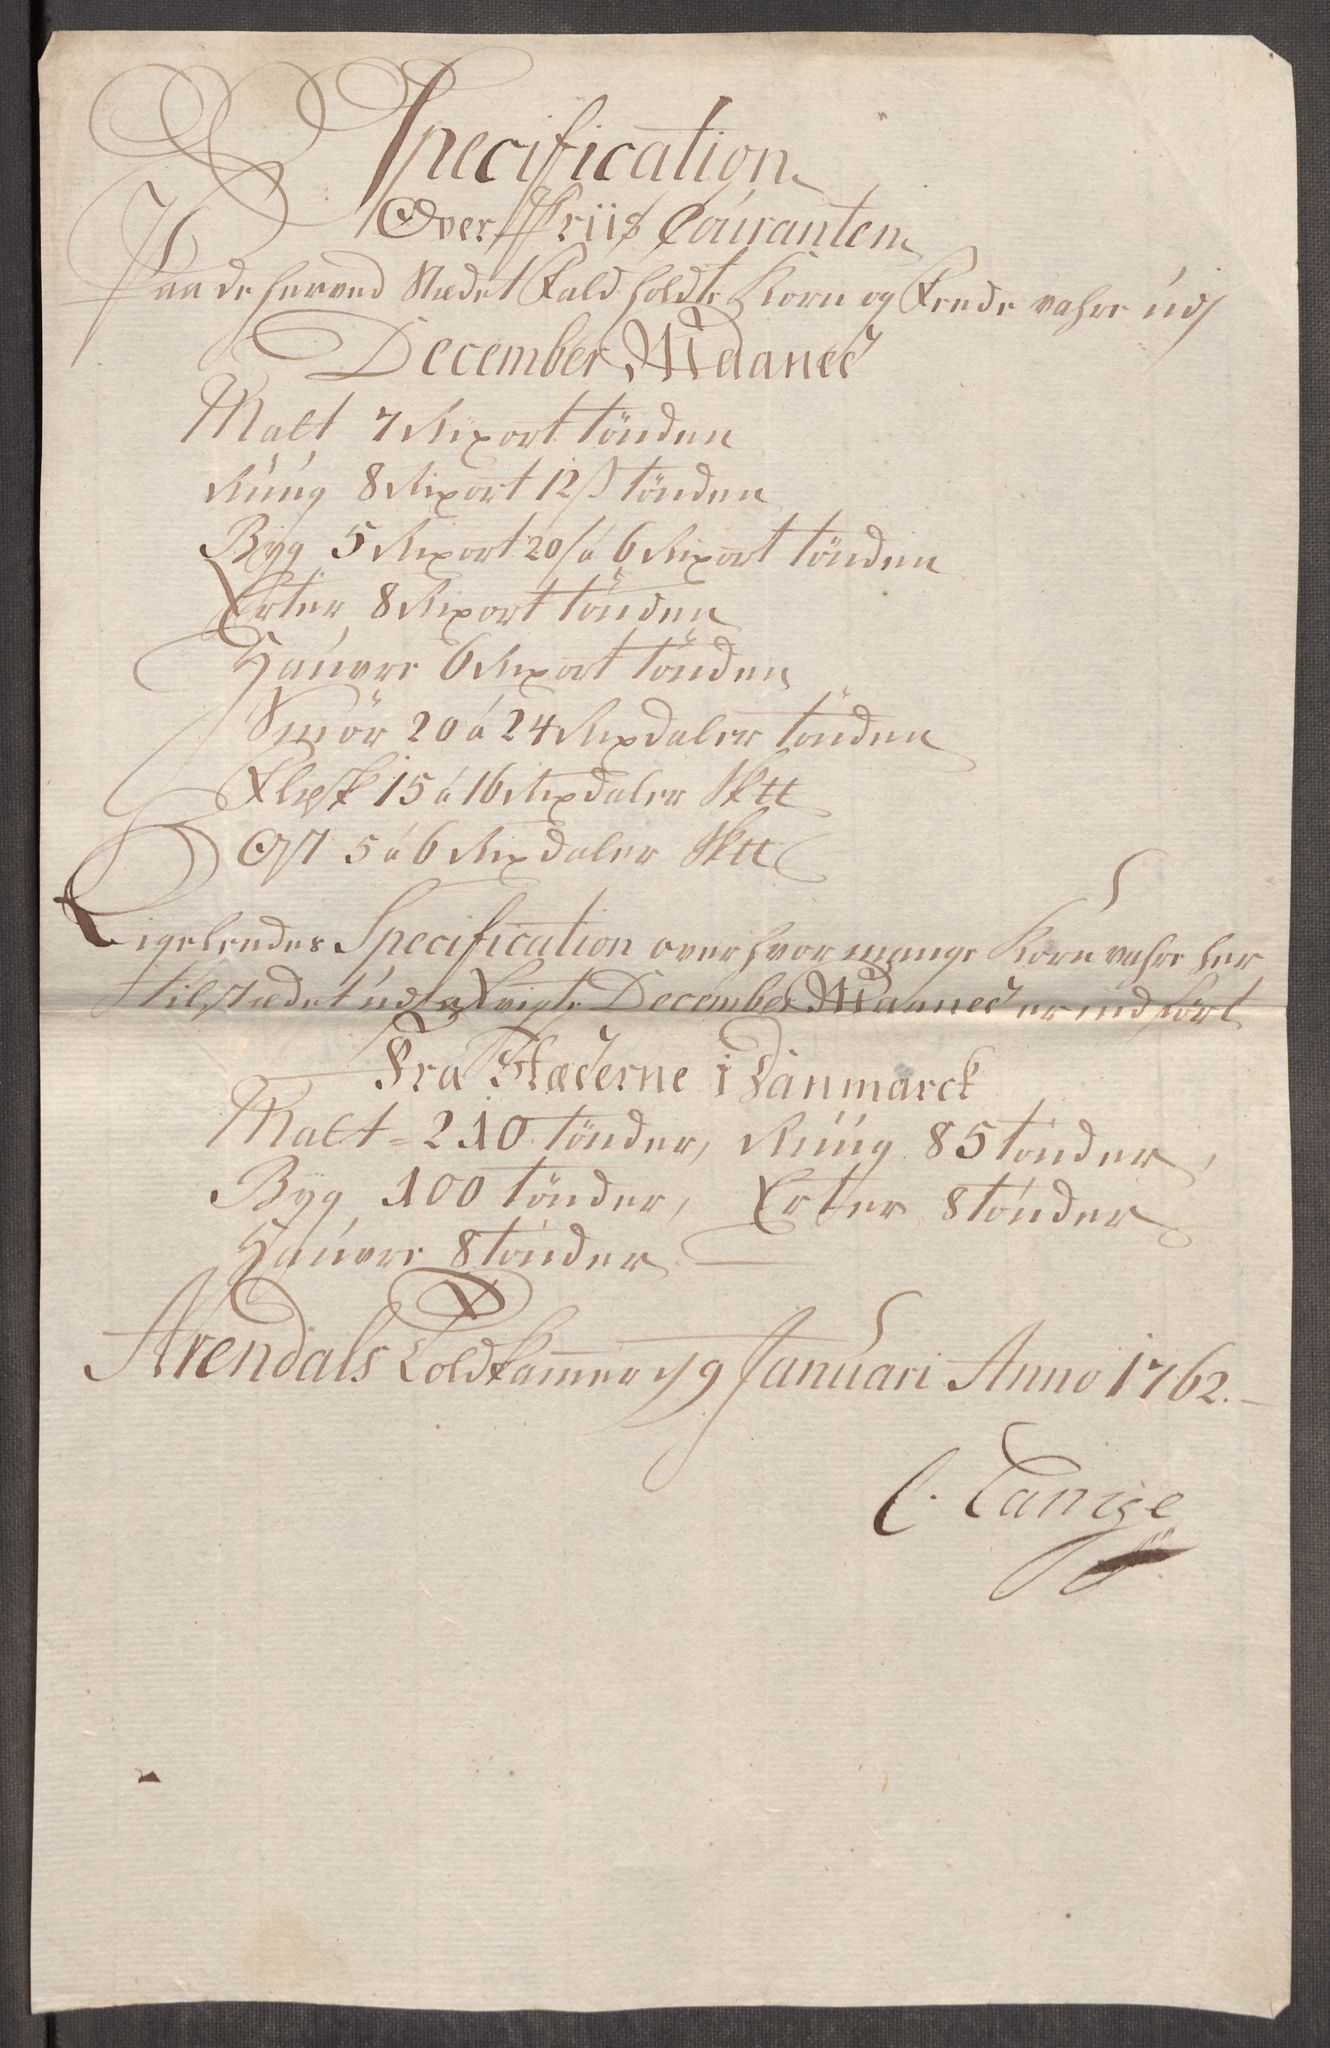 Specification
Over Priis Couranten
Paa de herved Stædet Fald holdte Korn og Fede vahre udj
December Maaned
Malt 7 Rixort tönden
Rúúg 8 Rixort 12 s tönden
Byg 5 Rixort 20 s á 6 Rixort tönden
Erter 8 Rixort tönden
Haúvre 6 Rixort tönden
Smör 20 á 24 Rixdaler tönden
Flesk 15 á 16 Rixdaler Sktt
Ost 5 á 6 Rixdaler Sktt
Ligeleedes Specification over hvor mange Korn vahre her
til stædet udj December Maaned er indfört
Fra Stæderne i Danmarck
Malt - 210 tönder, Rúúg 85 tönder,
Byg 100 tönder, Erter 8 tönder
Haúvre 8 tönder
Arendals Toldkammer d 9 Januari Anno 1762.
C. Lange